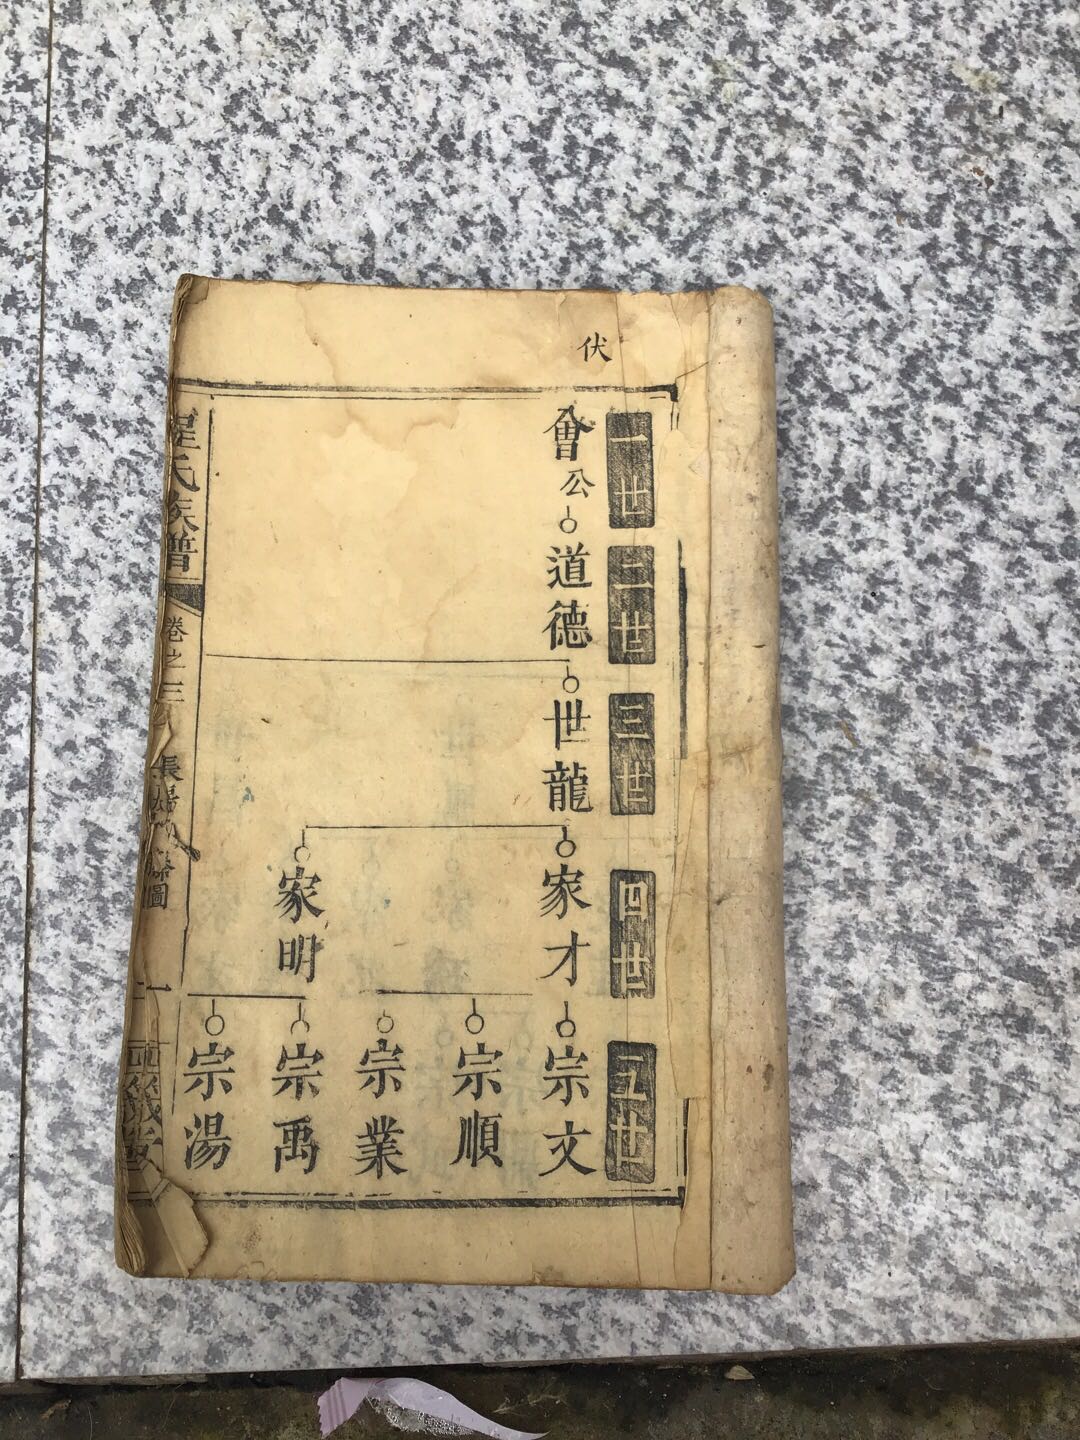 伏
一世
二世
三世
四世
五世
會公
道德
世龍
家才
家明
宗文
宗順
宗業
宗禹
宗湯
程氏族譜
卷之三
長房
圖